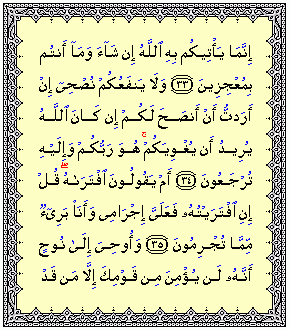 إِنَّمَا يَأْتِيكُم بِهِ ٱللَّهُ إِن شَآءَ وَمَآ أَنتُم
بِمُعْجِزِينَ ﴿٣٣﴾ وَلَا يَنفَعُكُمْ نُصْحِىٓ إِنْ
أَرَدتُّ أَنْ أَنصَحَ لَكُمْ إِن كَانَ ٱللَّهُ
يُرِيدُ أَن يُغْوِيَكُمْ ۚ هُوَ رَبُّكُمْ وَإِلَيْهِ
تُرْجَعُونَ ﴿٣٤﴾ أَمْ يَقُولُونَ ٱفْتَرَىٰهُ ۖ قُلْ
إِنِ ٱفْتَرَيْتُهُۥ فَعَلَىَّ إِجْرَامِى وَأَنَا۠ بَرِىٓءٌ
مِّمَّا تُجْرِمُونَ ﴿٣٥﴾ وَأُوحِىَ إِلَىٰ نُوحٍ
أَنَّهُۥ لَن يُؤْمِنَ مِن قَوْمِكَ إِلَّا مَن قَدْ